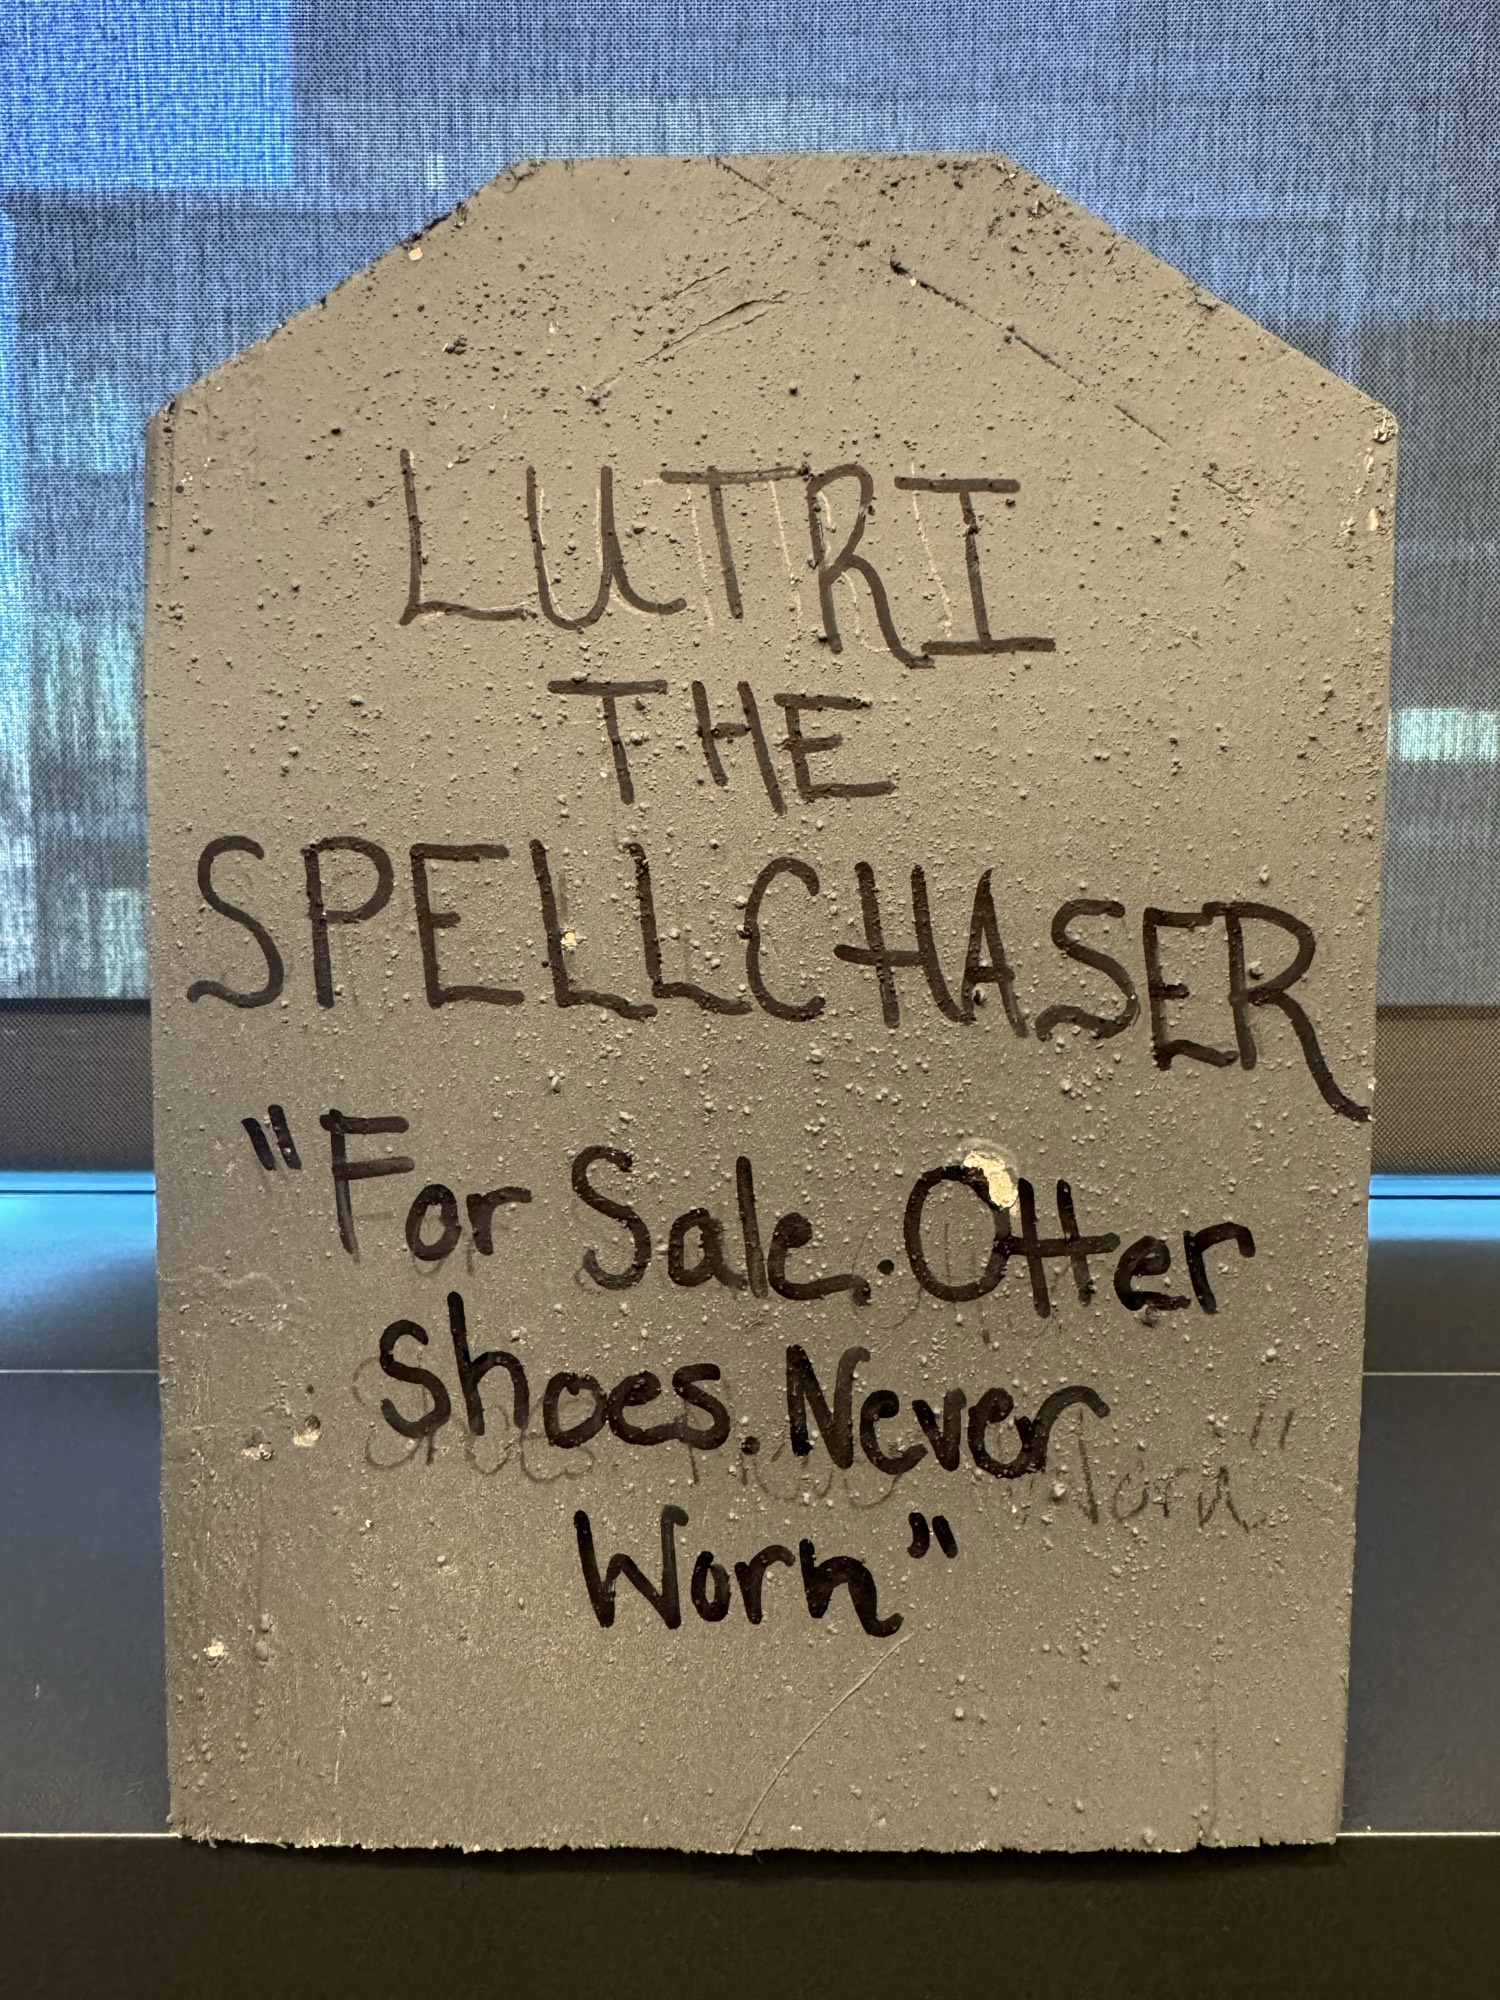 LUTRI
THE
SPELLCHASER
"For Sale. Otter
Shoes. Never
Worn"